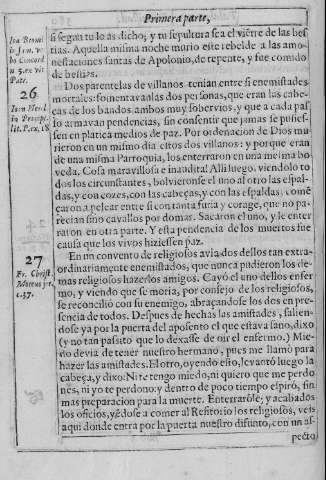 Primera parte,
si segun tu lo as dicho; y tu sepultura sea el viẽtre de las bes
tias. Aquella misma noche murio este rebelde a las amo-
nestaciones santas de Apolonio, de repente, y fue comido
de bestias.
Dos parentelas de villanos tenian entre si enemistades
mortales: fomentavanlas dos personas, que eran las cabe-
ças de los bandos: ambos muy sobervios, y que a cada pas-
so armavan pendencias, sin consentir que jamas se pusies-
sen en platica medios de paz. Por ordenacion de Dios mu
rieron en un mismo dia estos dos villanos: y porque eran
de una misma Parroquia, los enterraron en una mesma bo
veda. Cosa maravillosa e inaudita! Alli luego, viendolo to
dos los circunstantes, bolvieronse el uno al otro las espal-
das, y con cozes, con las cabeças, y con las espaldas, comē
çaron a pelear entre si con tanta furia y corage, que no pa-
recian sino cavallos por domar. Sacaron el uno, y le enter
raton en otra parte. Y esta pendencia de los muertos fue
causa que los vivos hiziessen paz.
En un convento de religiosos avia dos dellos tan extra-
ordinariamente enemistados, que nunca pudieron los de-
mas religiosos hazerlos amigos. Cayó el uno dellos enfer
mo, y viendo que se moria, por consejo de los religiosos,
se reconcilió con su enemigo, abraçandose los dos en pre-
sencia de todos. Despues de hechas las amistades, salien-
dose ya por la puerta del aposento el que estava sano, dixo
(y no tan passito que lo dexasse de oir el enfermo.) Mie-
do devia de tener nuestro hermano, pues me llamò para
hazer las amistades. El otro, oyendo esto, levantó luego la
cabeça, y dixo: Ni tengo miedo, ni quiero que me perdo
nes, ni yo te perdono: y dentro de poco tiempo espiró, sin
mas preparacion para la muerte. Enterrarōle; y acabados
los oficios, yẽdose a comer al Refitorio los religiosos, veis
aqui donde entra por la puerta nuestro difunto, con un as-
pecto
26
27
Fr. Christ.